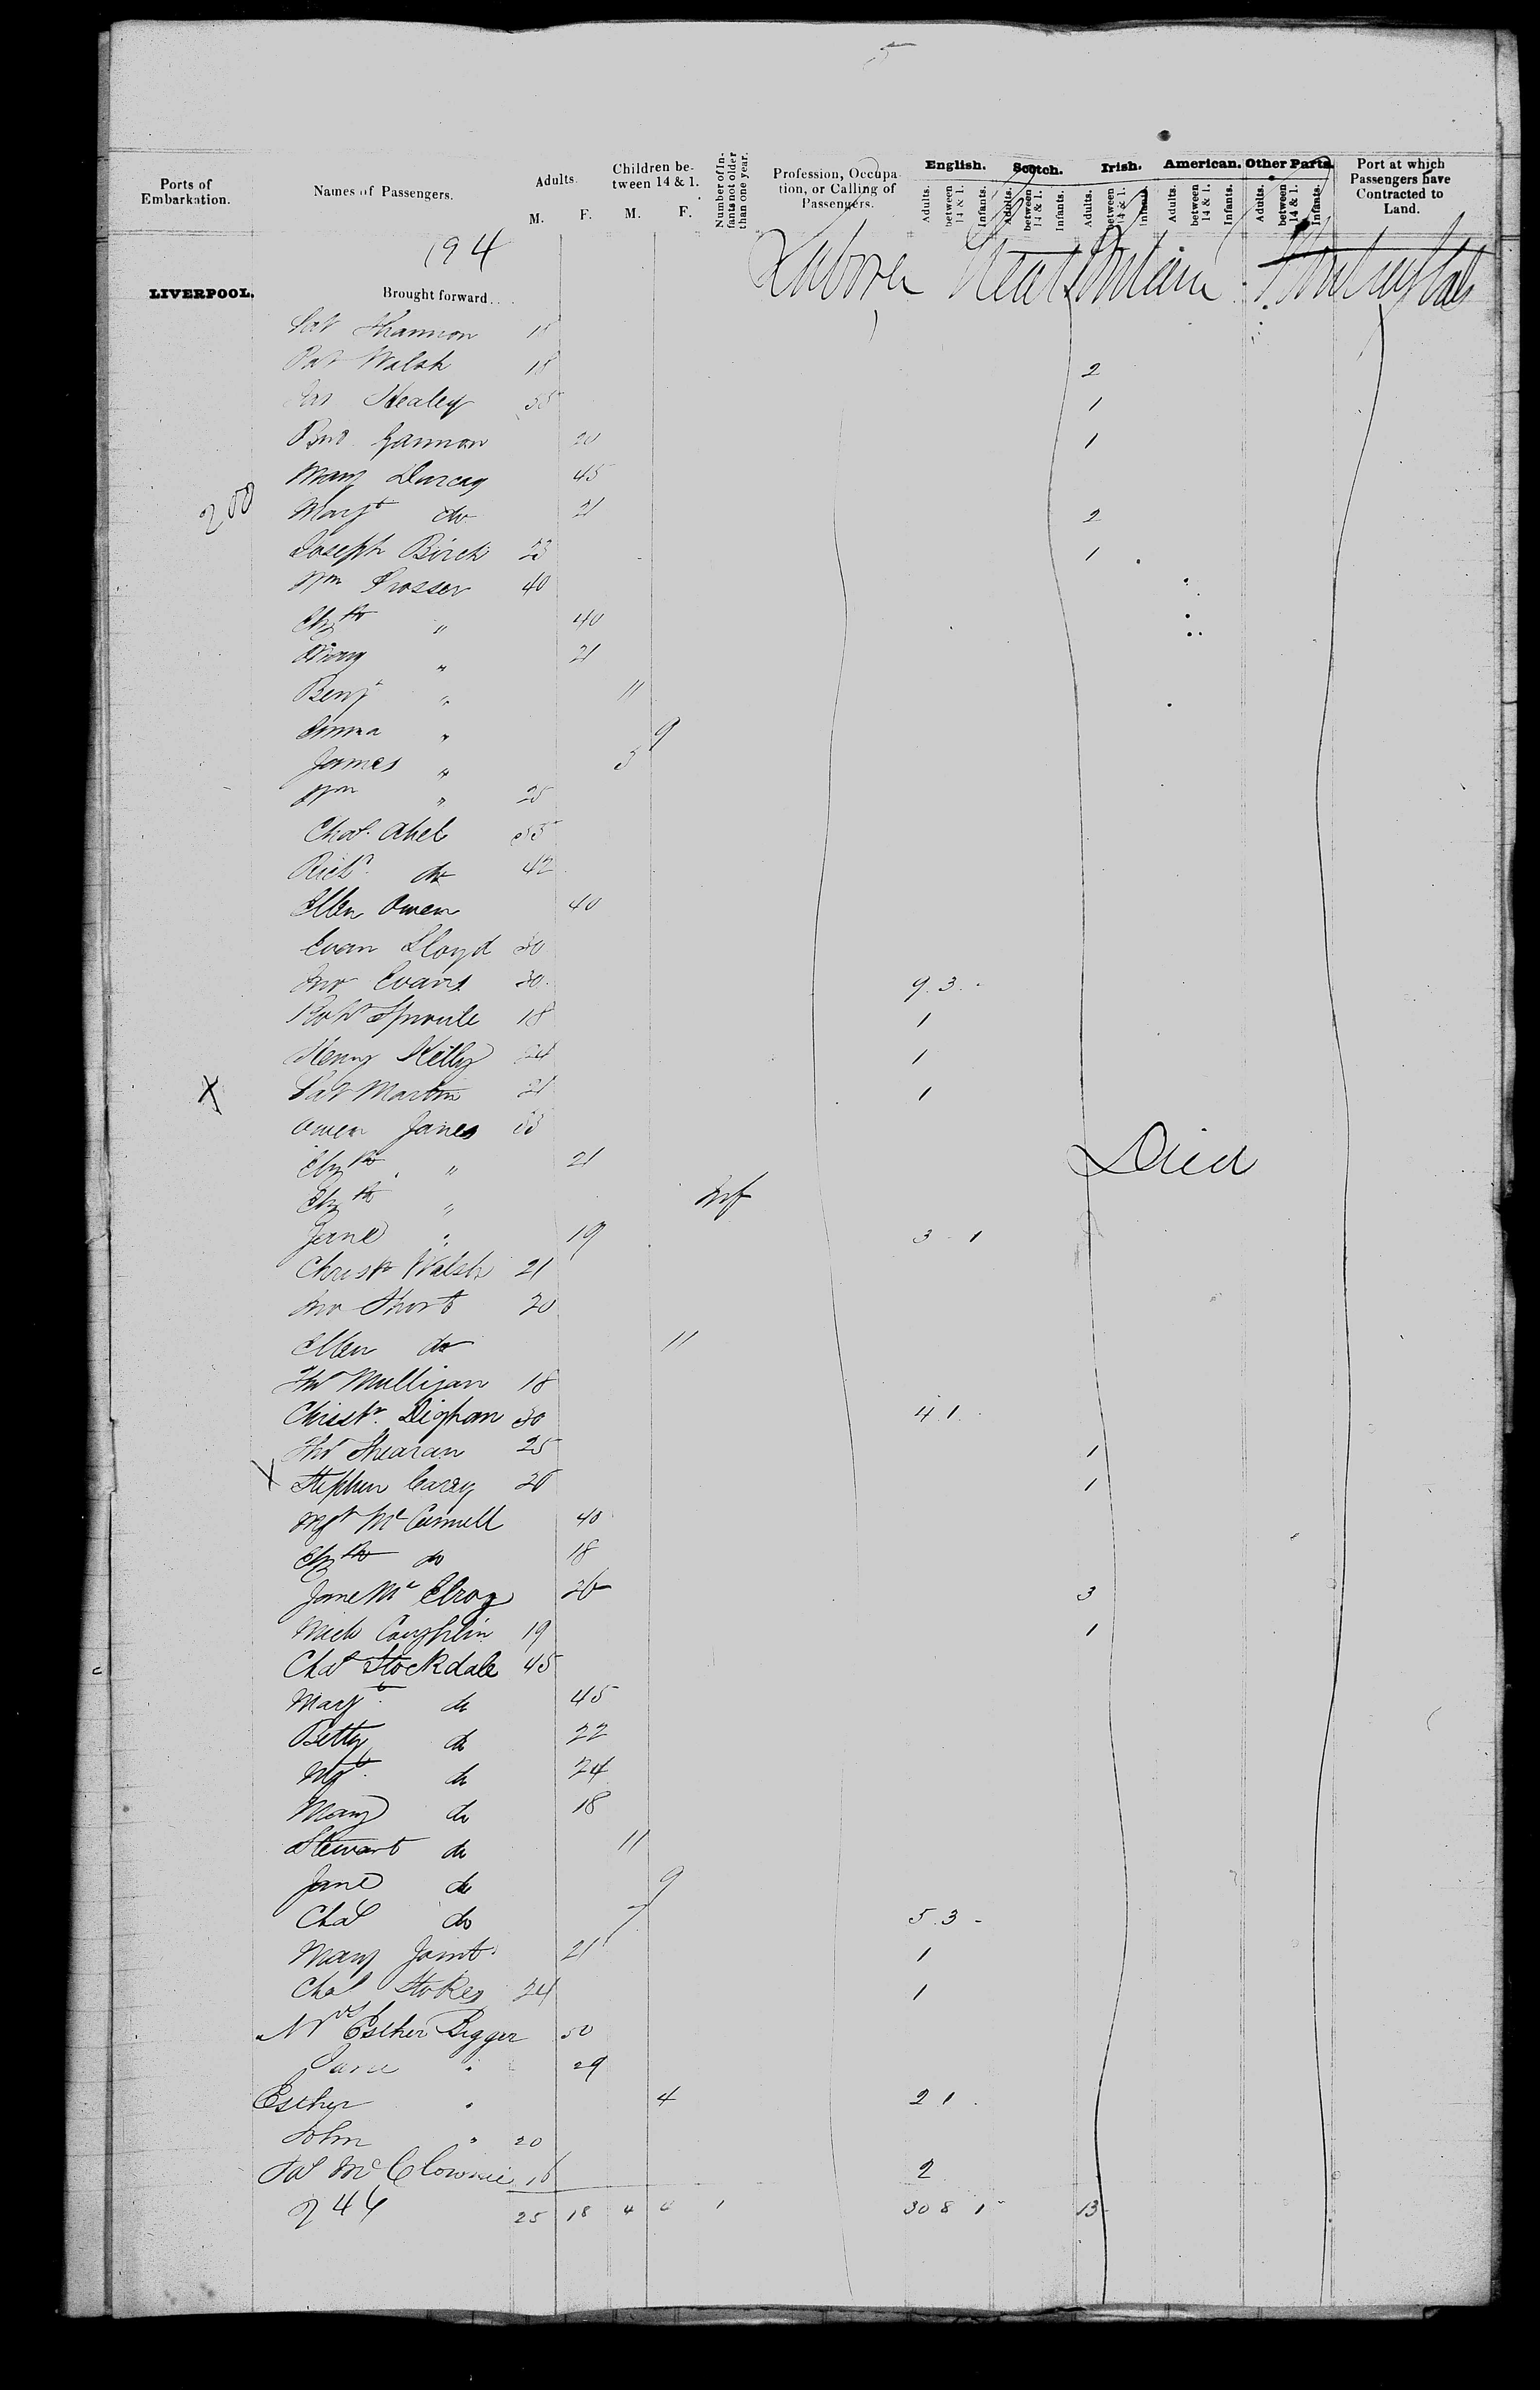 5
Ports of Embarkation. Names of Passengers. Adults. M. F. Children between 14 & 1. M. F. Number of Infants not older than one year. Profession, Occupation, or Calling of Passengers. English. Adults. between 14 & 1. Infants. Scotch. Adults. between 14 & 1. Infants. Irish. Adults. between 14 & 1. Infants. American. Adults. between 14 & 1. Infants. Other Parts. Adults. between 14 & 1. Infants. Port at which Passengers have Contracted to Land.
194
LIVERPOOL. Brought forward.... Laborer Great Britain
Pat Shannon 18
Pat Walsh 18 2
Healey 1
Gannon 20 1
Mary Durcay 45
200 Margt do 21 2
Joseph Birch 23 1
Wm Prosser 40
Elizth " 40
" 21
Benj " 11
Emma " 9
James " 5
Wm " 25
Chas. Abel 35
Richd. do 42
Ellen Owen 40
Evan Lloyd 30
Jno Evans 30. 9. 3. -
Robt Sproule 18 1
Henry Kelly 24 1
X Pat Martin 21 1
Owen Jones 33
Elizth " 21 Died
Elizth " Inf
Jane " 19 3 - 1
Christr Walsh 21
Jno Short 20
Ellen do 11
Thos Mulligan 18
Christr. Dignan 30 4 1 .
Thos Shearan 25 1
X Stephen Carey 20 1
Mgt McConnell 40
Elizth do 18
Jane McElroy 26 3
Mich Coughlin 19 1
Chas Stockdale 45
Margt. do 45
Betty do 22
Mgt. do 24
Mary do 18
Stewart do 11
Jane do 9
Chas do 7 5. 3 -
Mary Joint 21 1
Chas Stokes 24 1
Mrs Esther Bigger 50
Jane " 29
Esther " 4 2 1 .
John " 20
Jas McClownie 16 2
246 25 18 4 1 30 8 1 13